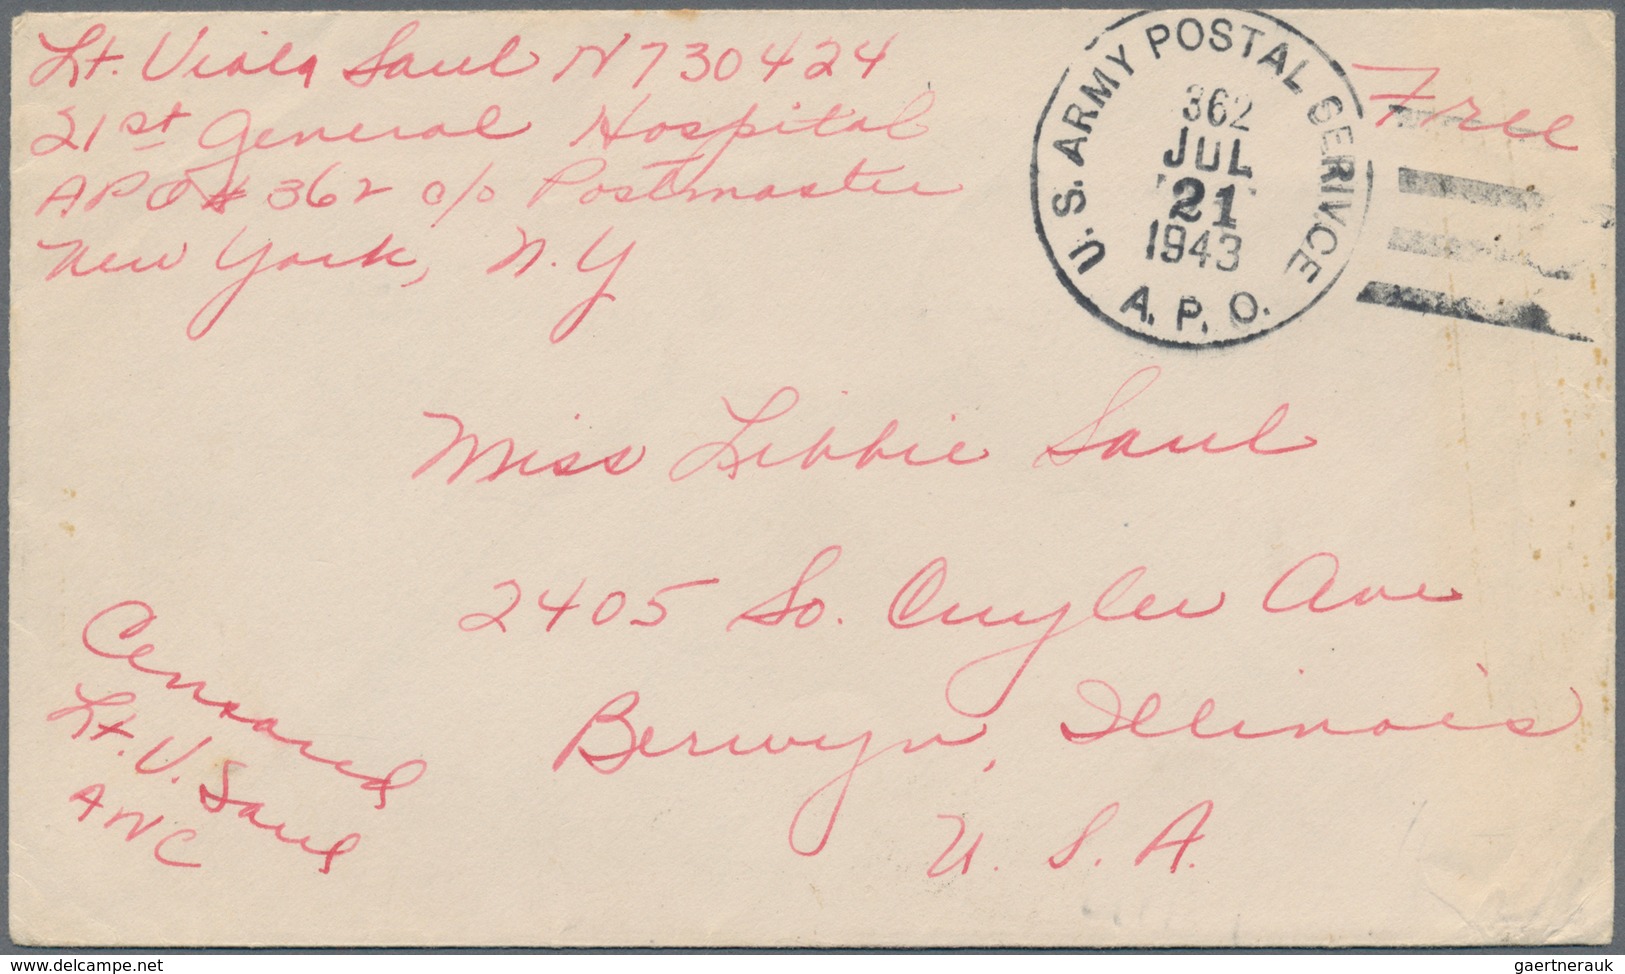 Lt. Viola Saul N730424
21st General Hospital
APO # 362 c/o Postmaster
New York, N.Y
Free
U.S. ARMY POSTAL SERIVCE
362
JUL
21
1943
A.P.O.
Miss Libbie Saul
2405 So. Cuyler Ave
Berwyn, Illinois
U.S.A.
Censored
Lt. V. Saul
ANC
www.delcampe.net
gaertnerauk